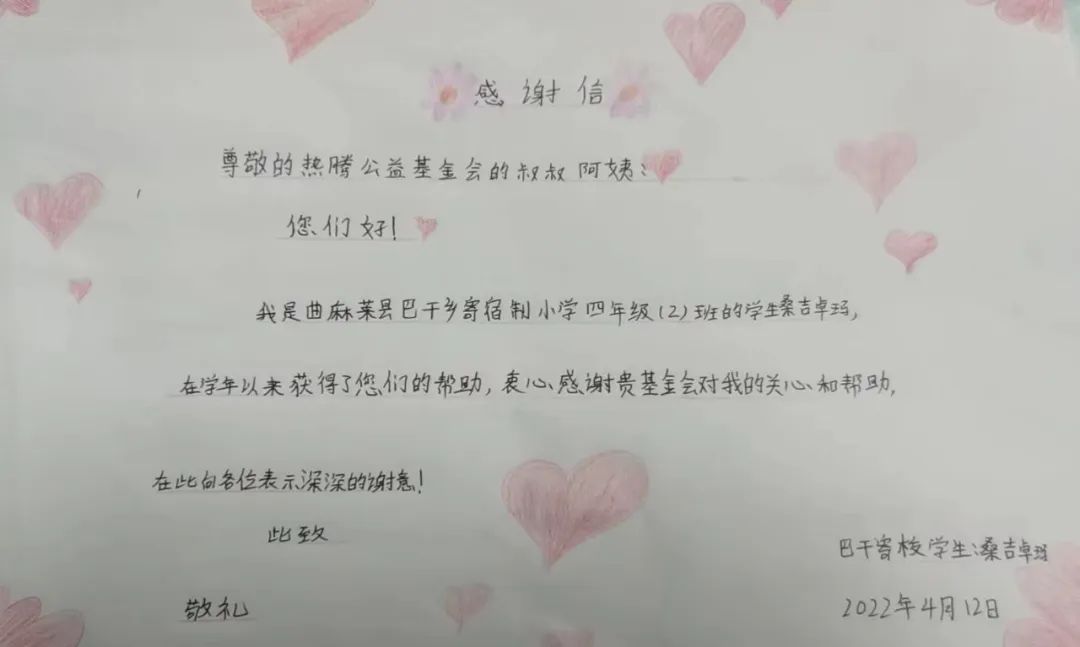 感谢信
尊敬的热腾公益基金会的叔叔阿姨：
您们好！
我是曲麻莱县巴干乡寄宿制小学四年级(2)班的学生桑吉卓玛,
在学年以来获得了您们的帮助,衷心感谢贵基金会对我的关心和帮助,
在此向各位表示深深的谢意！
此致
敬礼
巴干寄校学生:桑吉卓玛
2022年4月12日